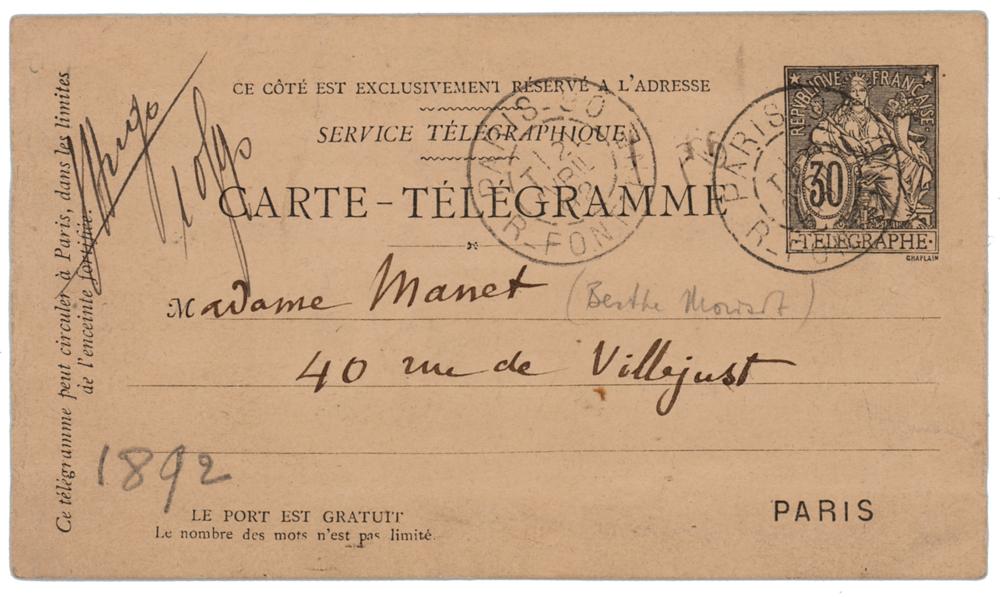 CE CÔTÉ EST EXCLUSIVEMENT RÉSERVÉ A L'ADRESSE
SERVICE TÉLÉGRAPHIQUE
CARTE-TÉLÉGRAMME
REPVBLIQVE FRANÇAISE
30
TELEGRAPHE
CHAPLAIN
PARIS
PARIS
Madame Manet (Berthe Morisot)
40 rue de Villejust
1892
LE PORT EST GRATUIT
Le nombre des mots n'est pas limité.
PARIS
Ce télégramme peut circuler à Paris, dans les limites
de l'enceinte fortifiée.